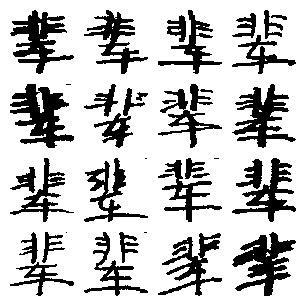 辈辈辈辈
辈辈辈辈
辈辈辈辈
辈辈辈辈